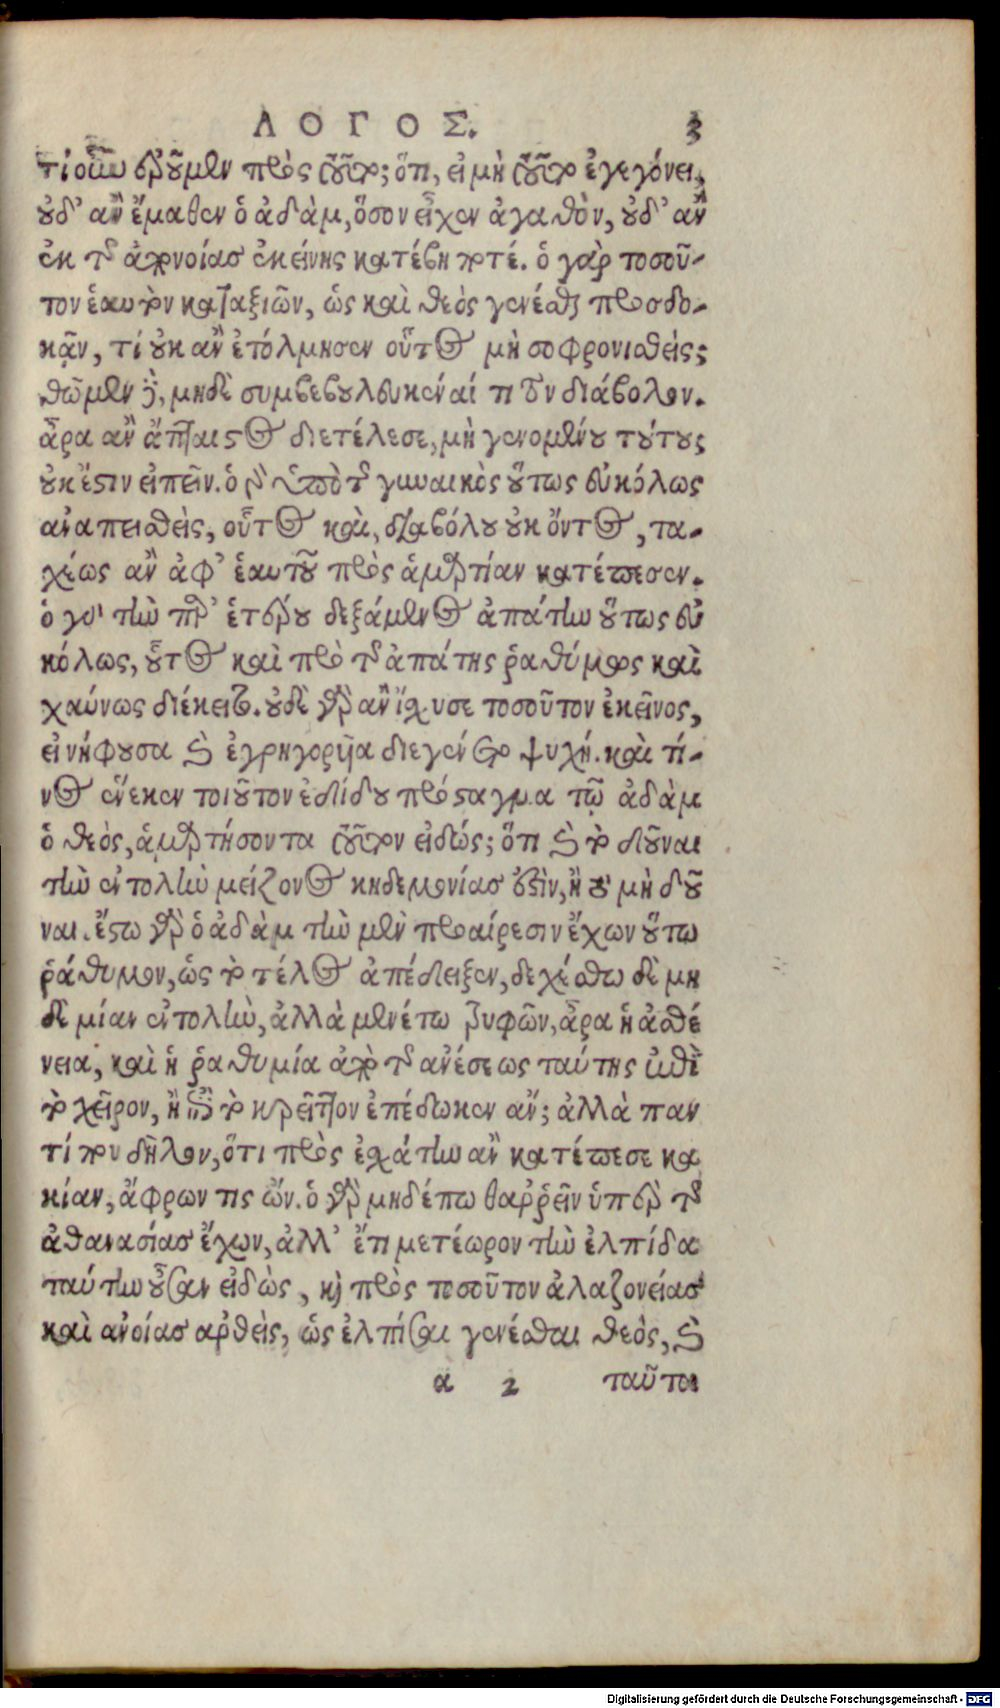 ΛΟΓΟΣ. 3
τί οὖν ἐροῦμεν πρὸς τοῦτο; ὅτι, εἰ μὴ τοῦτο ἐγεγόνει,
οὐδ' ἂν ἔμαθεν ὁ ἀδὰμ, ὅσον εἶχεν ἀγαθὸν, οὐδ' ἂν
ἐκ τῆς ἀπονοίας ἐκείνης κατέβη ποτέ. ὁ γὰρ τοσοῦ-
τον ἑαυτὸν καταξιῶν, ὡς καὶ θεὸς γενέσθαι προσδο-
κᾷν, τί οὐκ ἂν ἐτόλμησεν οὗτος μὴ σοφρονισθείς;
θῶμεν γὰρ, μηδὲ συμβεβουλευκέναί τι τὸν διάβολον.
ἆρα ἂν ἄπταιστος διετέλεσε, μὴ γενομένου τούτου;
οὐκ ἔστιν εἰπεῖν. ὁ γὰρ ὑπὸ τῆς γυναικὸς οὕτως εὐκόλως
αναπεισθεὶς, οὗτος καὶ, διαβόλου οὐκ ὄντος, τα-
χέως ἂν ἀφ' ἑαυτοῦ πρὸς ἁμαρτίαν κατέπεσεν.
ὁ γοῦν τὴν παρ' ἑτέρου δεξάμενος ἀπάτην οὕτως εὐ
κόλως, οὗτος καὶ πρὸ τῆς ἀπάτης ῥαθύμως καὶ
χαύνως διέκειτο. οὐδὲ γὰρ ἂν ἴσχυσε τοσοῦτον ἐκεῖνος,
εἰ νήφουσα καὶ ἐγρηγορυῖα διεγένετο ψυχή. καὶ τί-
νος ἕνεκεν τοιοῦτον ἐδίδου πρόσταγμα τῷ ἀδὰμ
ὁ θεὸς, ἁμαρτήσοντα τοῦτον εἰδώς; ὅτι καὶ τὸ δοῦναι
τὴν ἐντολὴν μείζονος κηδεμονίας ἐστὶν, ἢ τὸ μὴ δοῦ
ναι. ἔστω γὰρ ὁ ἀδὰμ τὴν μὲν προαίρεσιν ἔχων οὕτω
ῥάθυμον, ὡς τὸ τέλος ἀπέδειξεν, δεχέσθω δὲ μη
δὲ μίαν ἐντολὴν, ἀλλὰ μενέτω τρυφῶν, ἆρα ἡ ἀσθέ
νεια, καὶ ἡ ῥαθυμία ἀπὸ τῆς ανέσεως ταύτης ἐπὶ
τὸ χεῖρον, ἢ ἐπὶ τὸ κρεῖττον ἐπέδωκεν ἄν; ἀλλὰ παν
τί που δῆλον, ὅτι πρὸς ἐσχάτην ἂν κατέπεσε κα
κίαν, ἄφρων τις ὤν. ὁ γὰρ μηδέπω θαῤῥεῖν ὑπὲρ τῆς
ἀθανασίας ἔχων, ἀλλ' ἔτι μετέωρον τὴν ἐλπίδα
ταύτην οὖσαν εἰδὼς, καὶ πρὸς τοσοῦτον ἀλαζονείας
καὶ ανοίας αρθεὶς, ὡς ἐλπίσαι γενέσθαι θεὸς, καὶ
α 2 ταῦτα
Digitalisierung gefördert durch die Deutsche Forschungsgemeinschaft - DFG